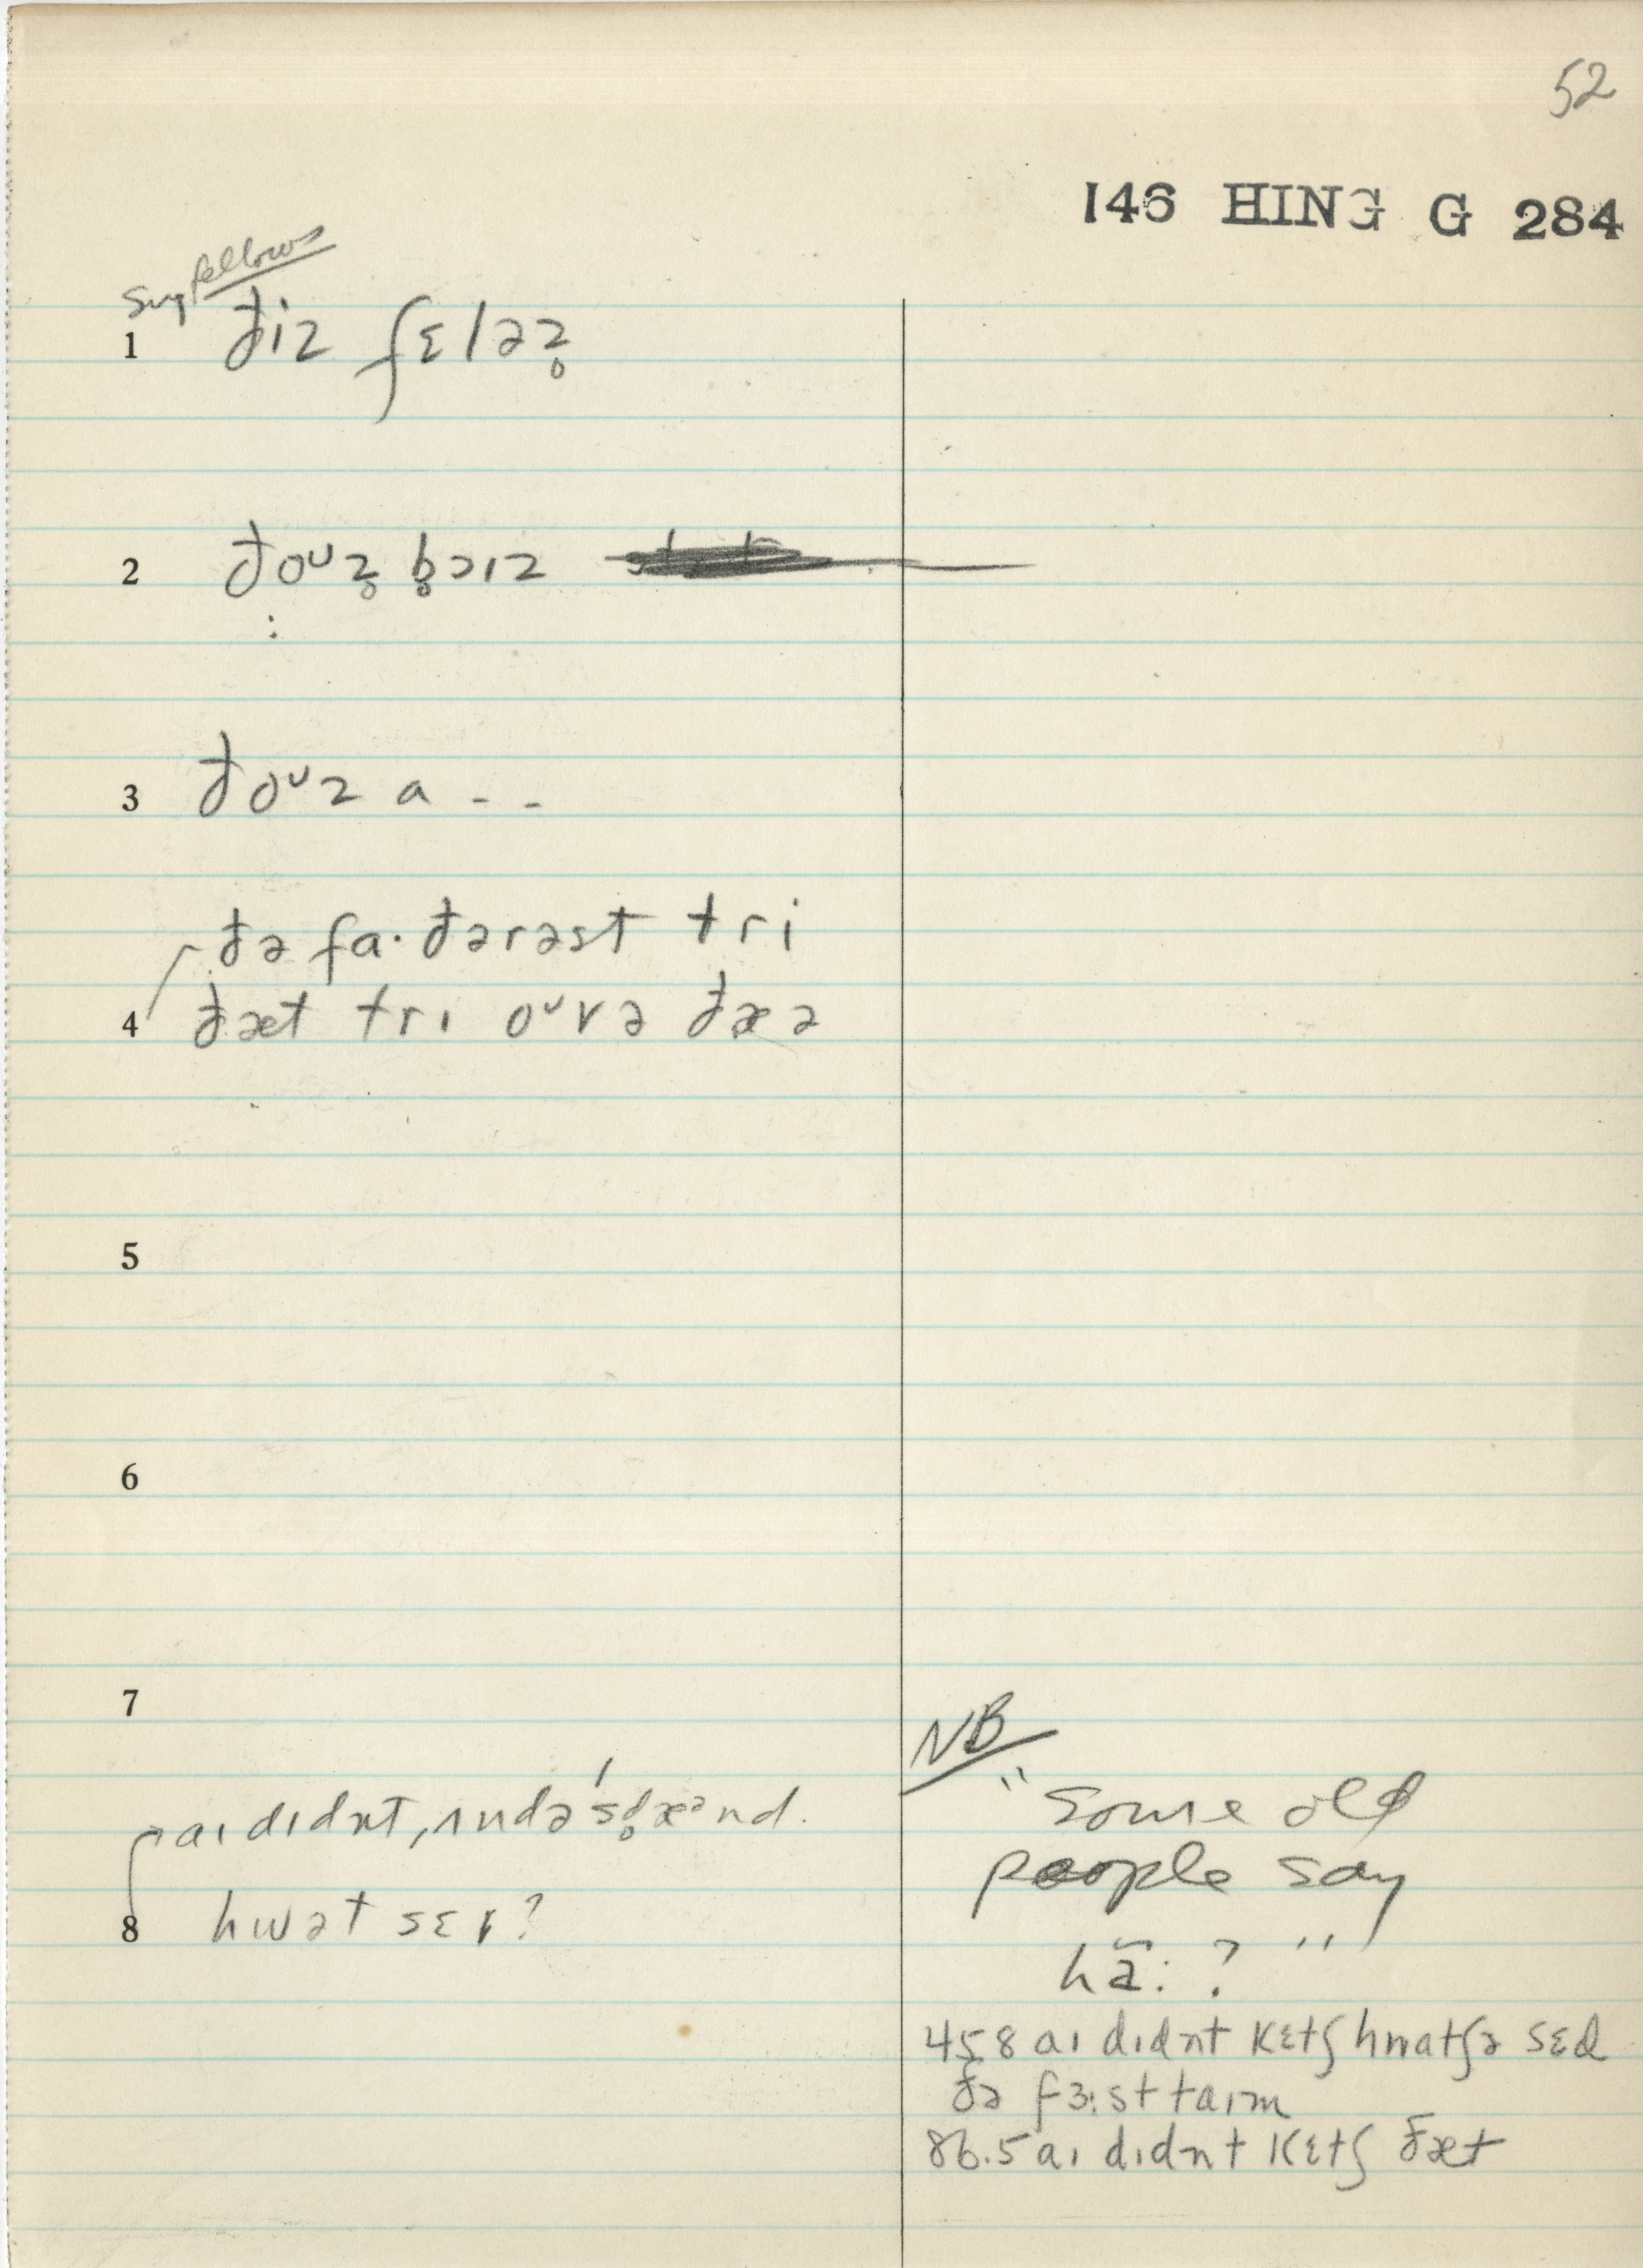 52
146 HING G 284
Sug fellows
1 ðiz fɛləz̥
2 ðoᶷz̥ b̥ɔɪz
:
3 ðoᶷz a - -
ðə fa· ðərəst tri
4 ðæt trɪ oᶷvə ðæə
5
6
7
aɪ dɪdnt, ʌndəˈsd̥æᵊnd.
8 hwət sɛr?
NB
"Some old
people say
hə̃: ? "
45.8 aɪ dɪdnt kɛtʃ hwatʃə sɛd
ðə fɜ:st taɪm
86.5 aɪ dɪdnt kɛtʃ ðæt